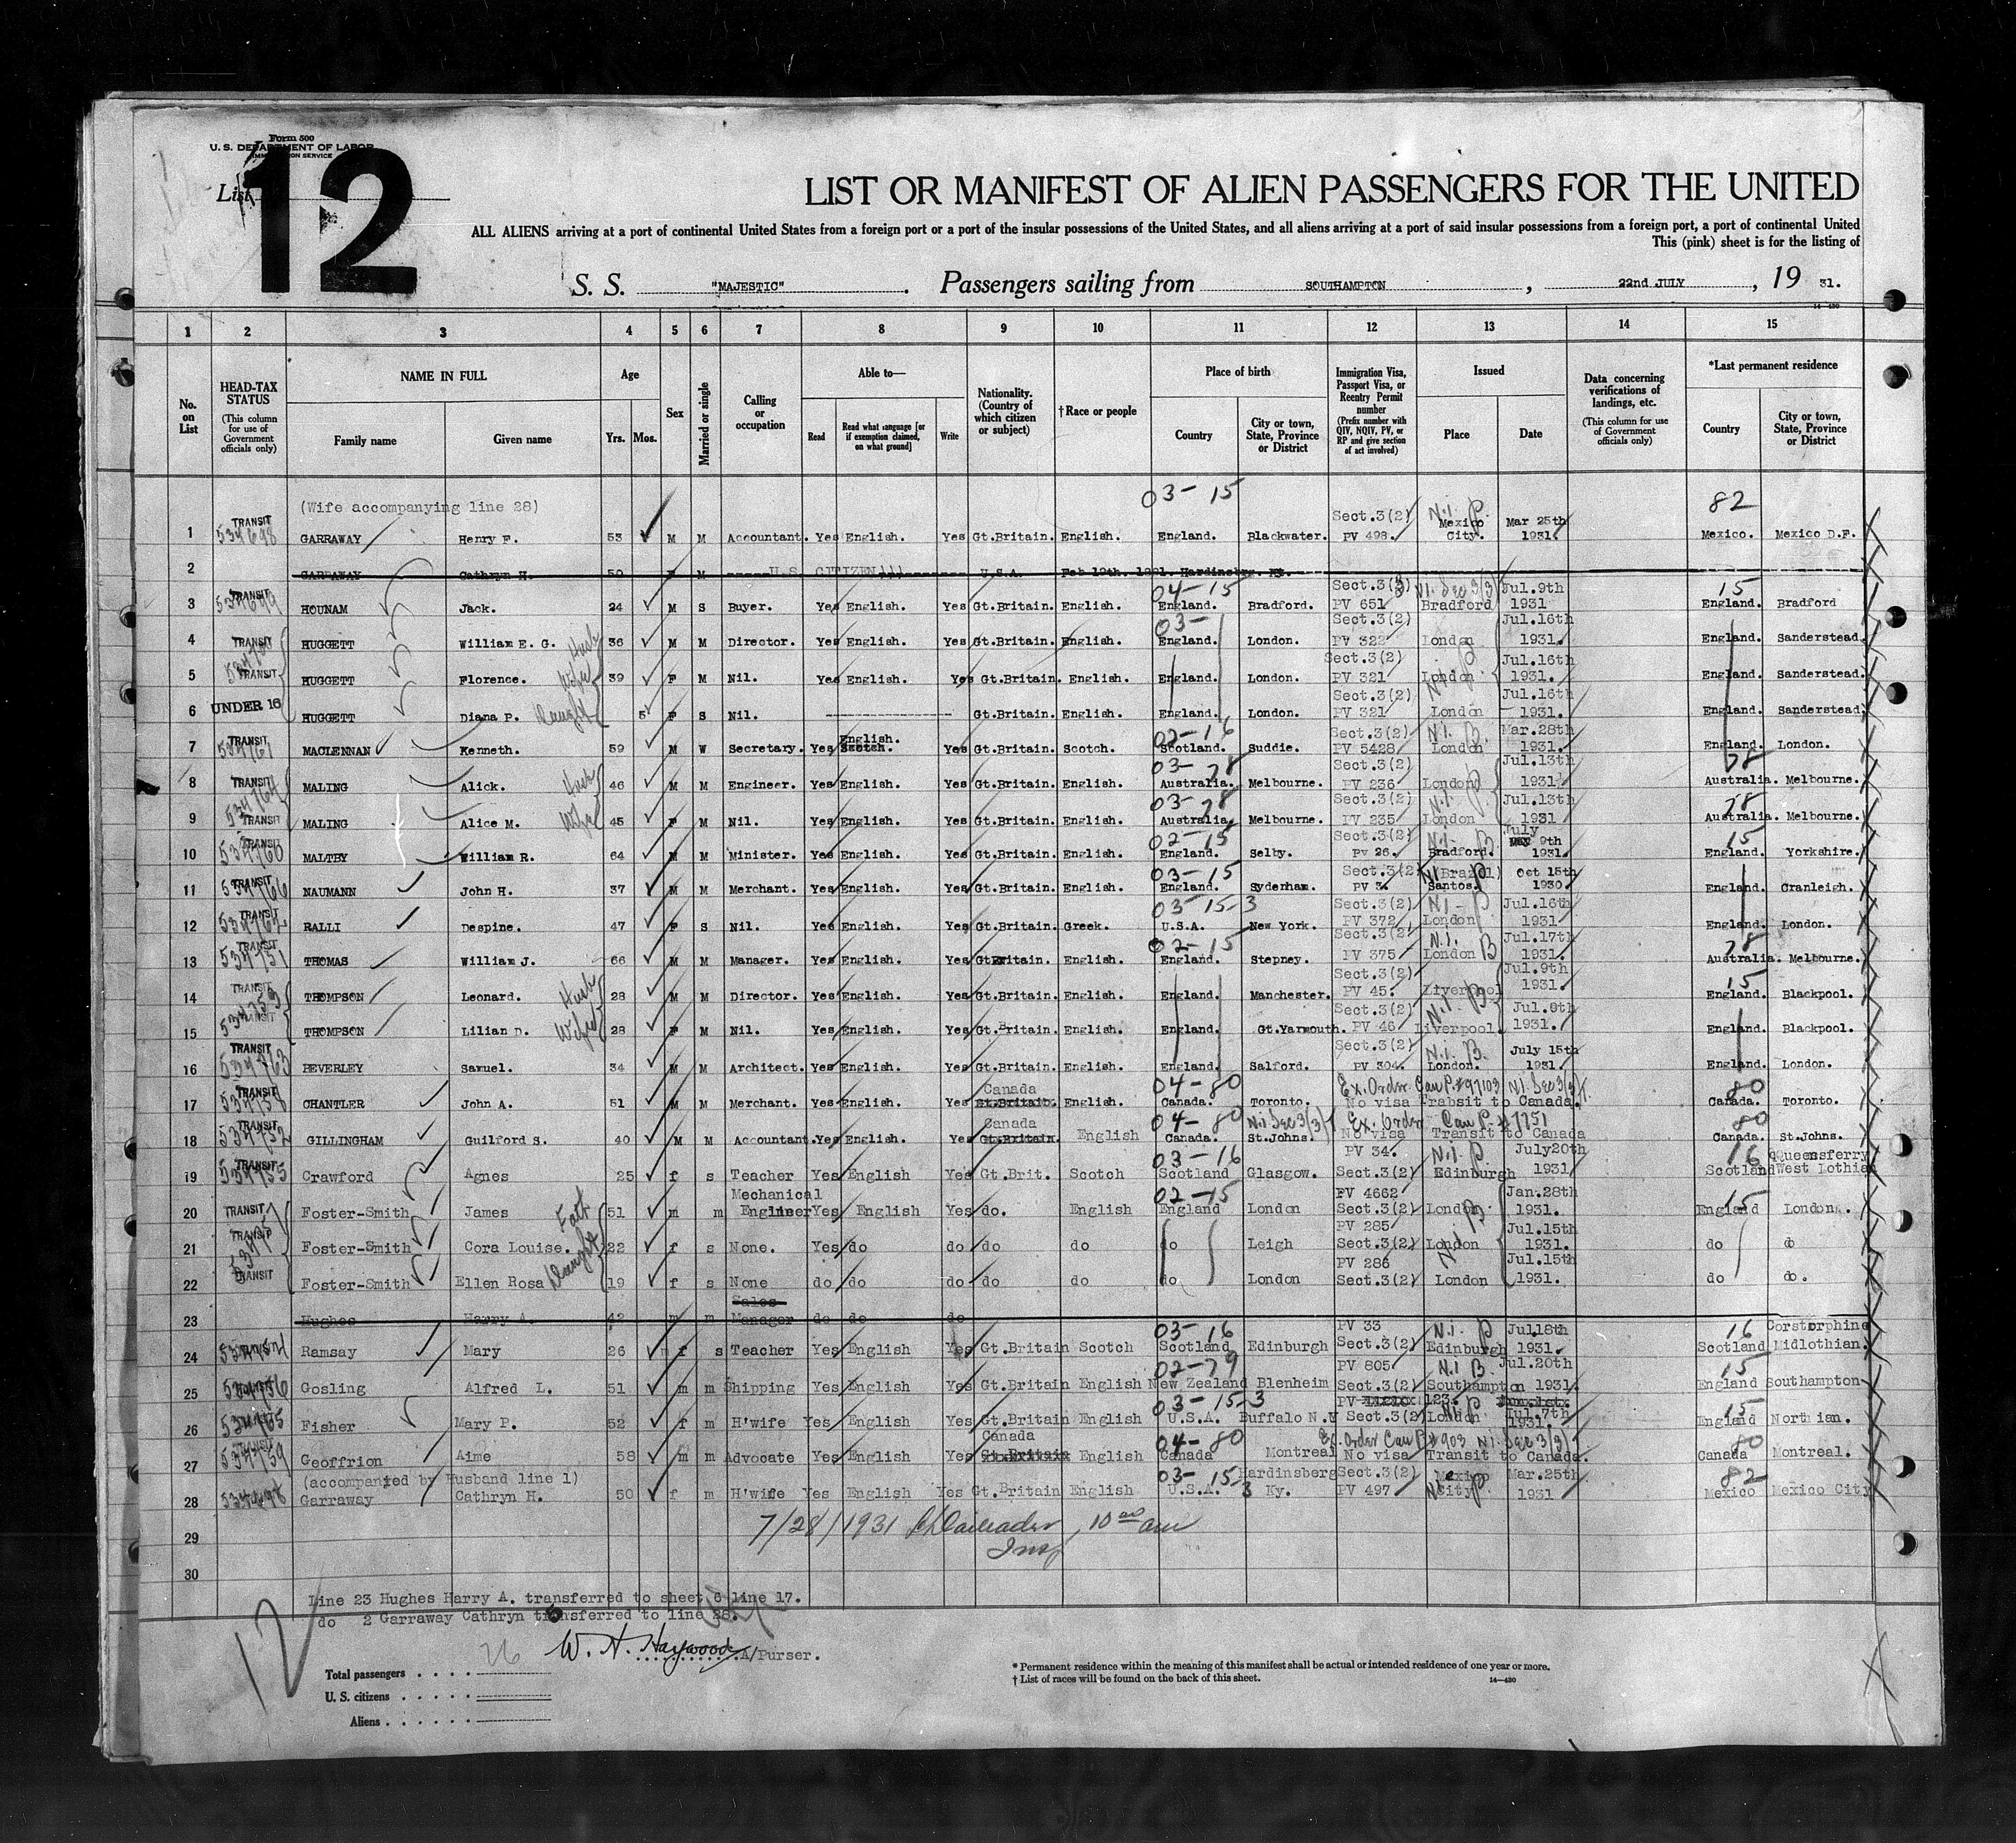 Form 500
U. S. DEPARTMENT OF LABOR
IMMIGRATION SERVICE
List 12
LIST OR MANIFEST OF ALIEN PASSENGERS FOR THE UNITED
ALL ALIENS arriving at a port of continental United States from a foreign port or a port of the insular possessions of the United States, and all aliens arriving at a port of said insular possessions from a foreign port, a port of continental United
This (pink) sheet is for the listing of
S. S. "MAJESTIC" . Passengers sailing from SOUTHAMPTON , 22nd JULY , 19 31.
14—430
1 2 3 4 5 6 7 8 9 10 11 12 13 14 15
No. on List
HEAD-TAX STATUS (This column for use of Government officials only)
NAME IN FULL Family name Given name
Age Yrs. Mos.
Sex
Married or single
Calling or occupation
Able to— Read Read what language [or if exemption claimed, on what ground] Write
Nationality. (Country of which citizen or subject)
† Race or people
Place of birth Country City or town, State, Province or District
Immigration Visa, Passport Visa, or Reentry Permit number (Prefix number with QIV, NQIV, PV, or RP and give section of act involved)
Issued Place Date
Data concerning verifications of landings, etc. (This column for use of Government officials only)
*Last permanent residence Country City or town, State, Province or District
(Wife accompanying line 28) 03-15 82
1 TRANSIT 534698 GARRAWAY Henry F. 53 M M Accountant. Yes English. Yes Gt.Britain. English. England. Blackwater. Sect.3(2) PV 498. Mexico City. Mar 25th 1931. Mexico. Mexico D.F.
2 GARRAWAY Cathryn H. 50 F M U.S. CITIZEN U.S.A. Feb 19th. 1881. Hardinsbrg. Ky.
3 TRANSIT 534699 HOUNAM Jack. 24 M S Buyer. Yes English. Yes Gt.Britain. English. 04-15 England. Bradford. Sect.3(2) PV 651 N.I. Sec 3(3) Bradford Jul.9th 1931 15 England. Bradford
4 TRANSIT HUGGETT William E. G. Husb 36 M M Director. Yes English. Yes Gt.Britain. English. 03- England. London. Sect.3(2) PV 322 London Jul.16th 1931. England. Sanderstead.
5 TRANSIT HUGGETT Florence. Wife 39 F M Nil. Yes English. Yes Gt.Britain. English. England. London. Sect.3(2) PV 321 London Jul.16th 1931. England. Sanderstead.
6 UNDER 16 HUGGETT Diana P. Daught 5 F S Nil. Gt.Britain. English. England. London. Sect.3(2) PV 321 London Jul.16th 1931. England. Sanderstead.
7 TRANSIT 534761 MACLENNAN Kenneth. 59 M W Secretary. Yes English. Scotch. Yes Gt.Britain. Scotch. 02-16 Scotland. Suddie. Sect.3(2) PV 5428 N.I. B. London Mar.28th 1931. England. London.
8 TRANSIT 534764 MALING Alick. Husb 46 M M Engineer. Yes English. Yes Gt.Britain. English. 03-78 Australia. Melbourne. Sect.3(2) PV 236 London Jul.13th 1931 78 Australia. Melbourne.
9 TRANSIT MALING Alice M. Wife 45 F M Nil. Yes English. Yes Gt.Britain. English. 03-78 Australia. Melbourne. Sect.3(2) PV 235 London Jul.13th 1931 78 Australia. Melbourne.
10 TRANSIT 534760 MALTBY William R. 64 M M Minister. Yes English. Yes Gt.Britain. English. 02-15 England. Selby. Sect.3(2) PV 26. N.I. B Bradford. July 9th 1931. 15 England. Yorkshire.
11 TRANSIT 534766 NAUMANN John H. 37 M M Merchant. Yes English. Yes Gt.Britain. English. 03-15 England. Sydenham. Sect.3(2) PV 3. (Brazil) Santos. Oct 15th 1930. England. Cranleigh.
12 TRANSIT 534762 RALLI Despine. 47 F S Nil. Yes English. Yes Gt.Britain. Greek. 03-15-3 U.S.A. New York. Sect.3(2) PV 372 London Jul.16th 1931. England. London.
13 TRANSIT 534751 THOMAS William J. 66 M M Manager. Yes English. Yes Gt.Britain. English. 02-15 England. Stepney. Sect.3(2) PV 375 N.I. B London Jul.17th 1931. 78 Australia. Melbourne.
14 TRANSIT 534753 THOMPSON Leonard. Husb 28 M M Director. Yes English. Yes Gt.Britain. English. England. Manchester. Sect.3(2) PV 45. Liverpool Jul.9th 1931. 15 England. Blackpool.
15 TRANSIT THOMPSON Lilian D. Wife 28 F M Nil. Yes English. Yes Gt.Britain. English. England. Gt.Yarmouth. Sect.3(2) PV 46 Liverpool. Jul.9th 1931. England. Blackpool.
16 TRANSIT 534763 BEVERLEY Samuel. 34 M M Architect. Yes English. Yes Gt.Britain. English. England. Salford. Sect.3(2) PV 304. N.I. B. London. July 15th 1931. England. London.
17 TRANSIT 534758 CHANTLER John A. 51 M M Merchant. Yes English. Yes Canada Gt.Britain. English. 04-80 Canada. Toronto. Ex. Order Can P.#97103 N.I. Sec 3(3) No visa Trabsit to Canada. 80 Canada. Toronto.
18 TRANSIT 534752 GILLINGHAM Guilford S. 40 M M Accountant. Yes English. Yes Canada Gt.Britain English 04-80 Canada. St.Johns. N.I. Sec 3(3) Ex. Order Can P.#7751 No visa Transit to Canada 80 Canada. St.Johns.
19 TRANSIT 534755 Crawford Agnes 25 f s Teacher Yes English Yes Gt.Brit. Scotch 03-16 Scotland Glasgow. PV 34. Sect.3(2) Edinburgh July20th 1931 16 Scotland Queensferry West Lothian
20 TRANSIT Foster-Smith James Fath 51 m m Mechanical Engineer Yes English Yes do. English 02-15 England London PV 4662 Sect.3(2) London Jan.28th 1931. 15 England London.
21 TRANSIT Foster-Smith Cora Louise. Daught 22 f s None. Yes do do do do do Leigh PV 285 Sect.3(2) London Jul.15th 1931. do do
22 TRANSIT Foster-Smith Ellen Rosa 19 f s None do do do do do do London PV 286 Sect.3(2) London Jul.15th 1931. do do.
23 Hughes Harry A. 42 m m Sales Manager do do do
24 TRANSIT 534754 Ramsay Mary 26 f s Teacher Yes English Yes Gt.Britain Scotch 03-16 Scotland Edinburgh PV 33 Sect.3(2) Edinburgh Jul18th 1931. 16 Scotland Corstorphine Midlothian.
25 534756 Gosling Alfred L. 51 m m Shipping Yes English Yes Gt.Britain English 02-79 New Zealand Blenheim PV 805 Sect.3(2) N.I B. Southampton Jul.20th 1931. 15 England Southampton
26 534765 Fisher Mary P. 52 f m H'wife Yes English Yes Gt.Britain English 03-15-3 U.S.A. Buffalo N.Y PV 123. Sect.3(2) London Jul.7th 1931. 15 England
27 534759 Geoffrion Aime 58 m m Advocate Yes English Yes Canada Gt.Britain English 04-80 Canada Montreal Ex. Order Can P.#903 N.I. Sec 3(3) No visa Transit to Canada. 80 Canada Montreal.
(accompanied by Husband line 1)
28 534698 Garraway Cathryn H. 50 f m H'wife Yes English Yes Gt.Britain English 03-15-3 U.S.A. Hardinsberg Ky. Sect.3(2) PV 497 Mexico City Mar.25th 1931 82 Mexico Mexico City
29 7/28/1931 10 00 am
Insp
30
Line 23 Hughes Harry A. transferred to sheet 6 line 17.
do 2 Garraway Cathryn transferred to line 28.
12
W. H. Haywood A/Purser.
Total passengers . . . . 26
U. S. citizens . . . . .
Aliens . . . . . .
* Permanent residence within the meaning of this manifest shall be actual or intended residence of one year or more.
† List of races will be found on the back of this sheet.
14—430